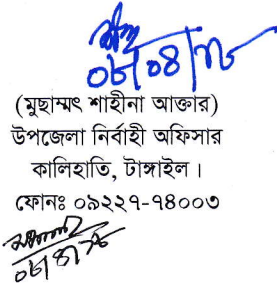 ০৮/০৪/১৮
(মুছাম্মৎ শাহীনা আক্তার)
উপজেলা নির্বাহী অফিসার
কালিহাতি, টাঙ্গাইল।
ফোনঃ ০৯২২৭-৭৪০০৩